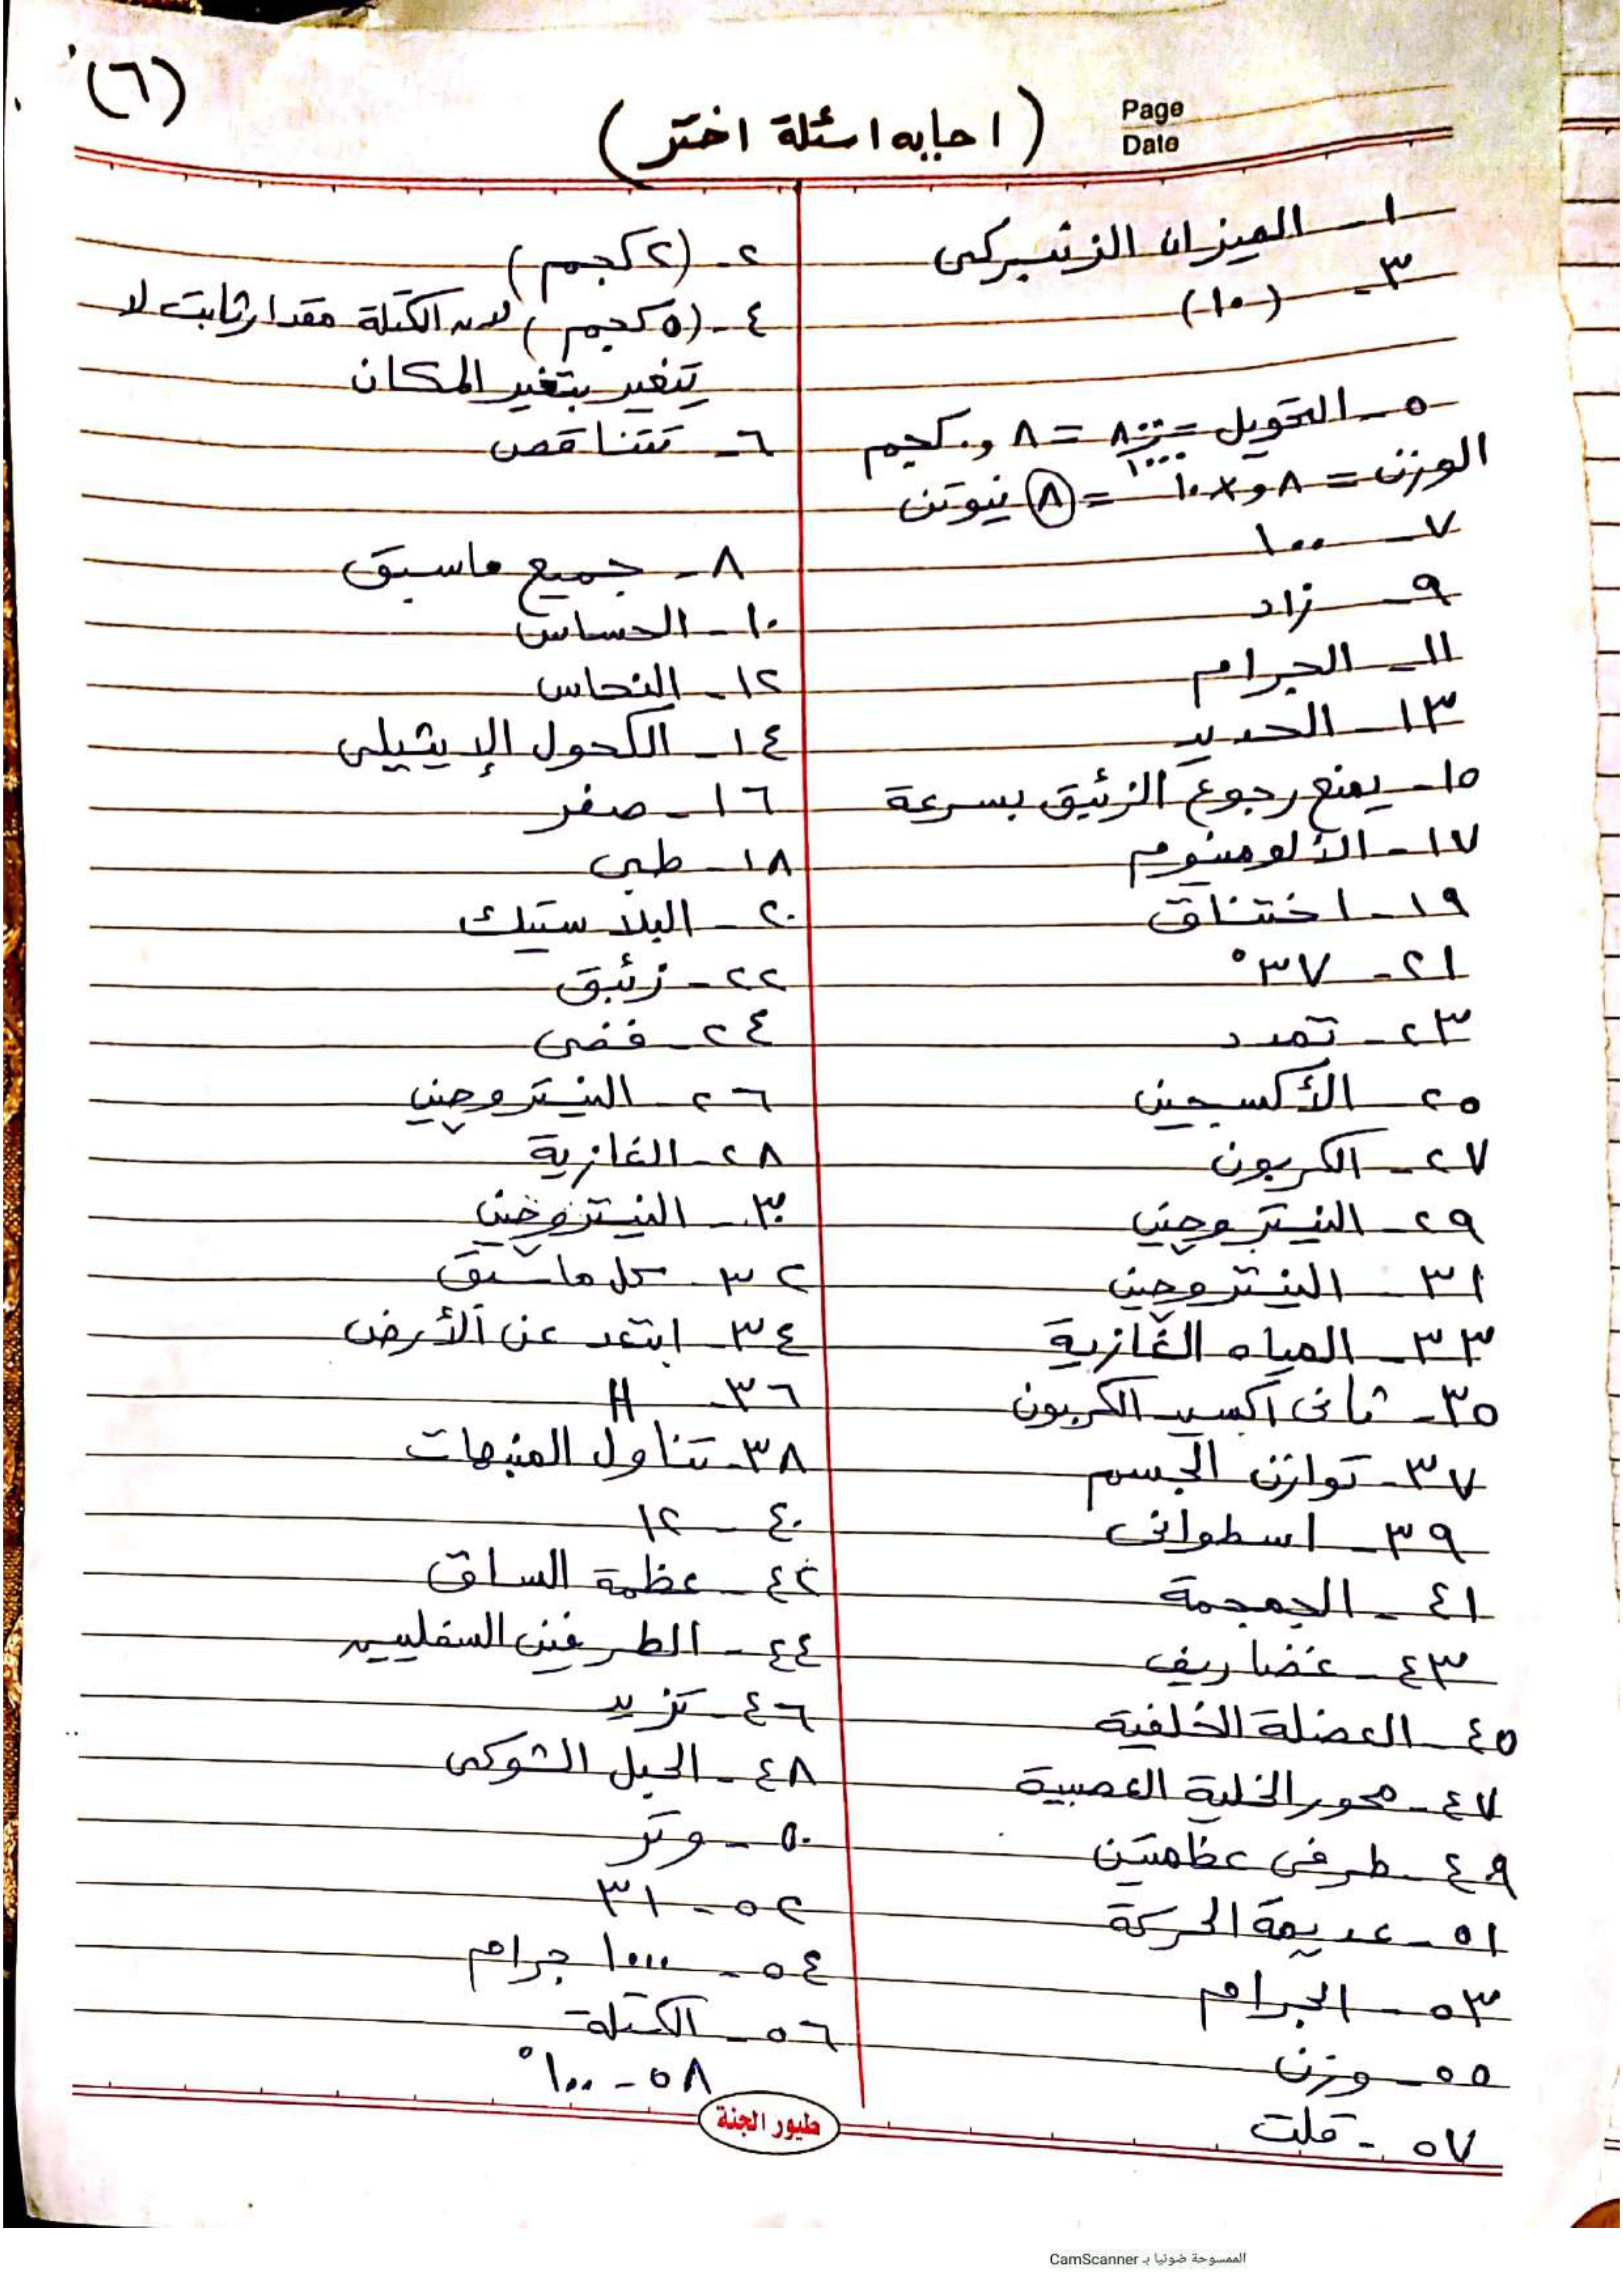 (٦)
(اجابه اسئلة اختر)
Page
Date
١- الميزان الزنبركى
٢- (٢ كجم)
٣- (١٠)
٤- (٥ كجم) لان الكتلة مقدار ثابت لا
تتغير بتغير المكان
٥- التحويل = ٨٠٠/١٠٠٠ = ٨و. كجم
الوزن = ٨و × ١٠ = ٨ نيوتن
٦- تتناقص
٧- ١٠٠
٨- جميع ماسبق
٩- زاد
١٠- الحساس
١١- الجرام
١٢- النحاس
١٣- الحديد
١٤- الكحول الإيثيلى
١٥- يمنع رجوع الزئبق بسرعة
١٦- صفر
١٧- الألومنيوم
١٨- طبى
١٩- اختناق
٢٠- البلاستيك
٢١- ٣٧°
٢٢- زئبق
٢٣- تمدد
٢٤- فضى
٢٥- الأكسجين
٢٦- النيتروجين
٢٧- الكربون
٢٨- الغازية
٢٩- النيتروجين
٣٠- النيتروجين
٣١- النيتروجين
٣٢- كل ماسبق
٣٣- المياه الغازية
٣٤- ابتعد عن الأرض
٣٥- ثانى أكسيد الكربون
٣٦- H
٣٧- توازن الجسم
٣٨- تناول المنبهات
٣٩- اسطوانى
٤٠- ١٢
٤١- الجمجمة
٤٢- عظمة الساق
٤٣- غضاريف
٤٤- الطرفين السفليين
٤٥- العضلة الخلفية
٤٦- تزيد
٤٧- محور الخلية العصبية
٤٨- الحبل الشوكى
٤٩- طرفى عظمتين
٥٠- وتر
٥١- عديمة الحركة
٥٢- ٣١
٥٣- الجرام
٥٤- ١٠٠٠ جرام
٥٥- وزن
٥٦- الكتلة
٥٧- قلت
٥٨- ١٠٠°
طيور الجنة
الممسوحة ضوئيا بـ CamScanner